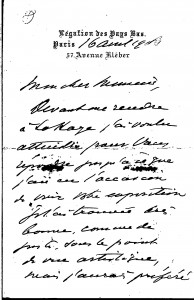 Légation des Pays Bas.
Paris 16 Avril
57. Avenue Kléber
Mon cher Monsieur,
Devant me rendre
à La Haye, j'ai voulu
attendre pour vous
jusqu'à ce que
j'aie eu l'occasion
de voir votre exposition
Je l'ai trouvée très
bonne, comme de
juste, sous le point
de vue artistique,
mais j'aurais préféré